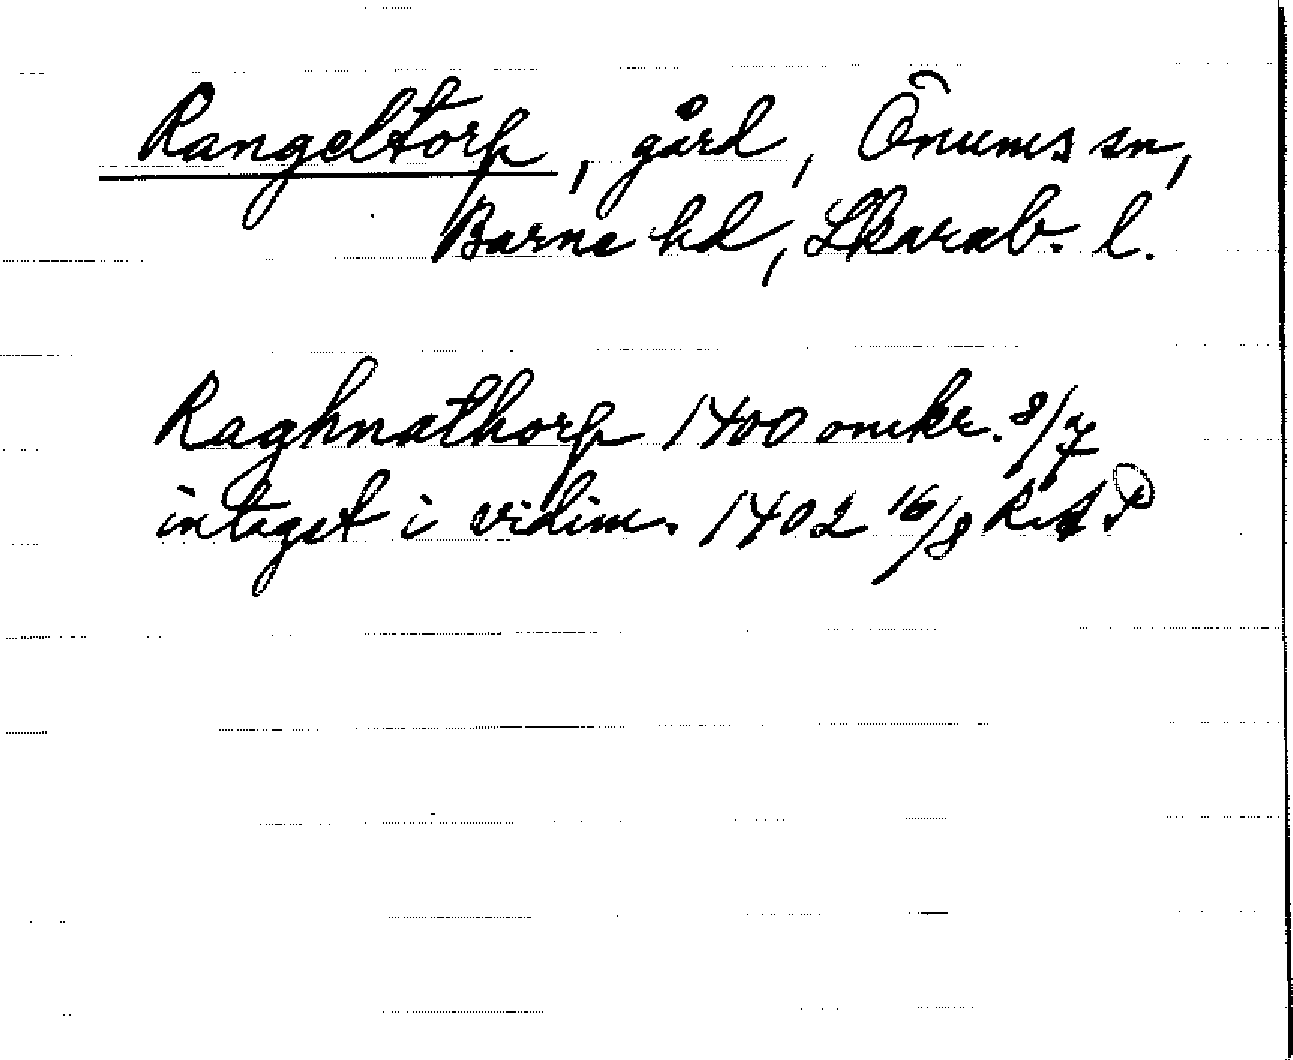 Rangeltorp, gård, Önums sn,
Barne hd, Skarab. l.
Raghnathorp 1400 omkr. 8/7
intaget i vidim. 1402 16/8 RAP